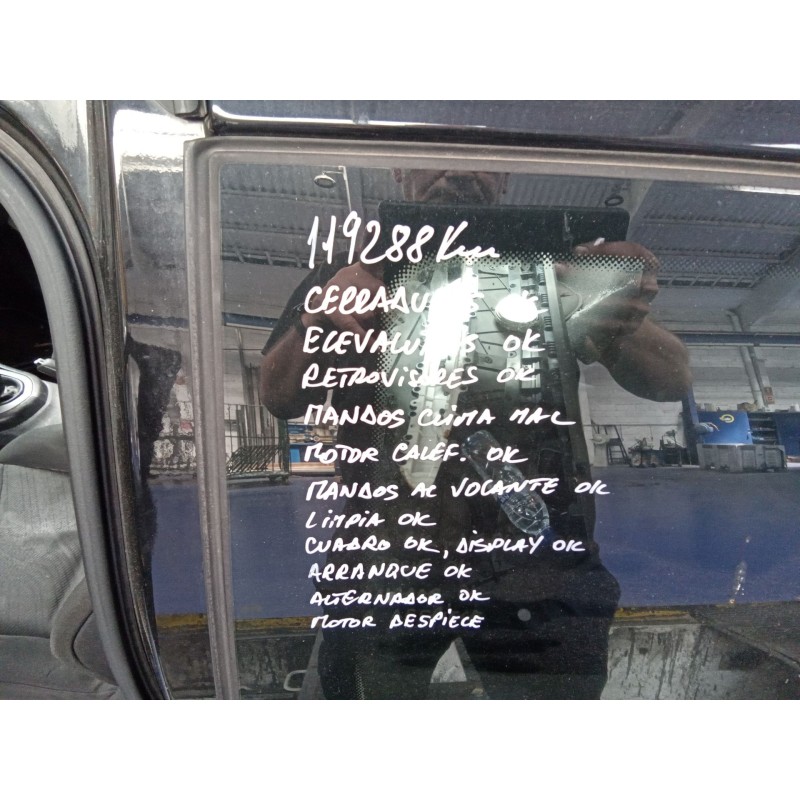 119288 Km
CERRADURAS OK
ELEVALUNAS OK
RETROVISORES OK
MANDOS CLIMA MAL
MOTOR CALEF. OK
MANDOS AL VOLANTE OK
LIMPIA OK
CUADRO OK, DISPLAY OK
ARRANQUE OK
ALTERNADOR OK
MOTOR DESPIECE